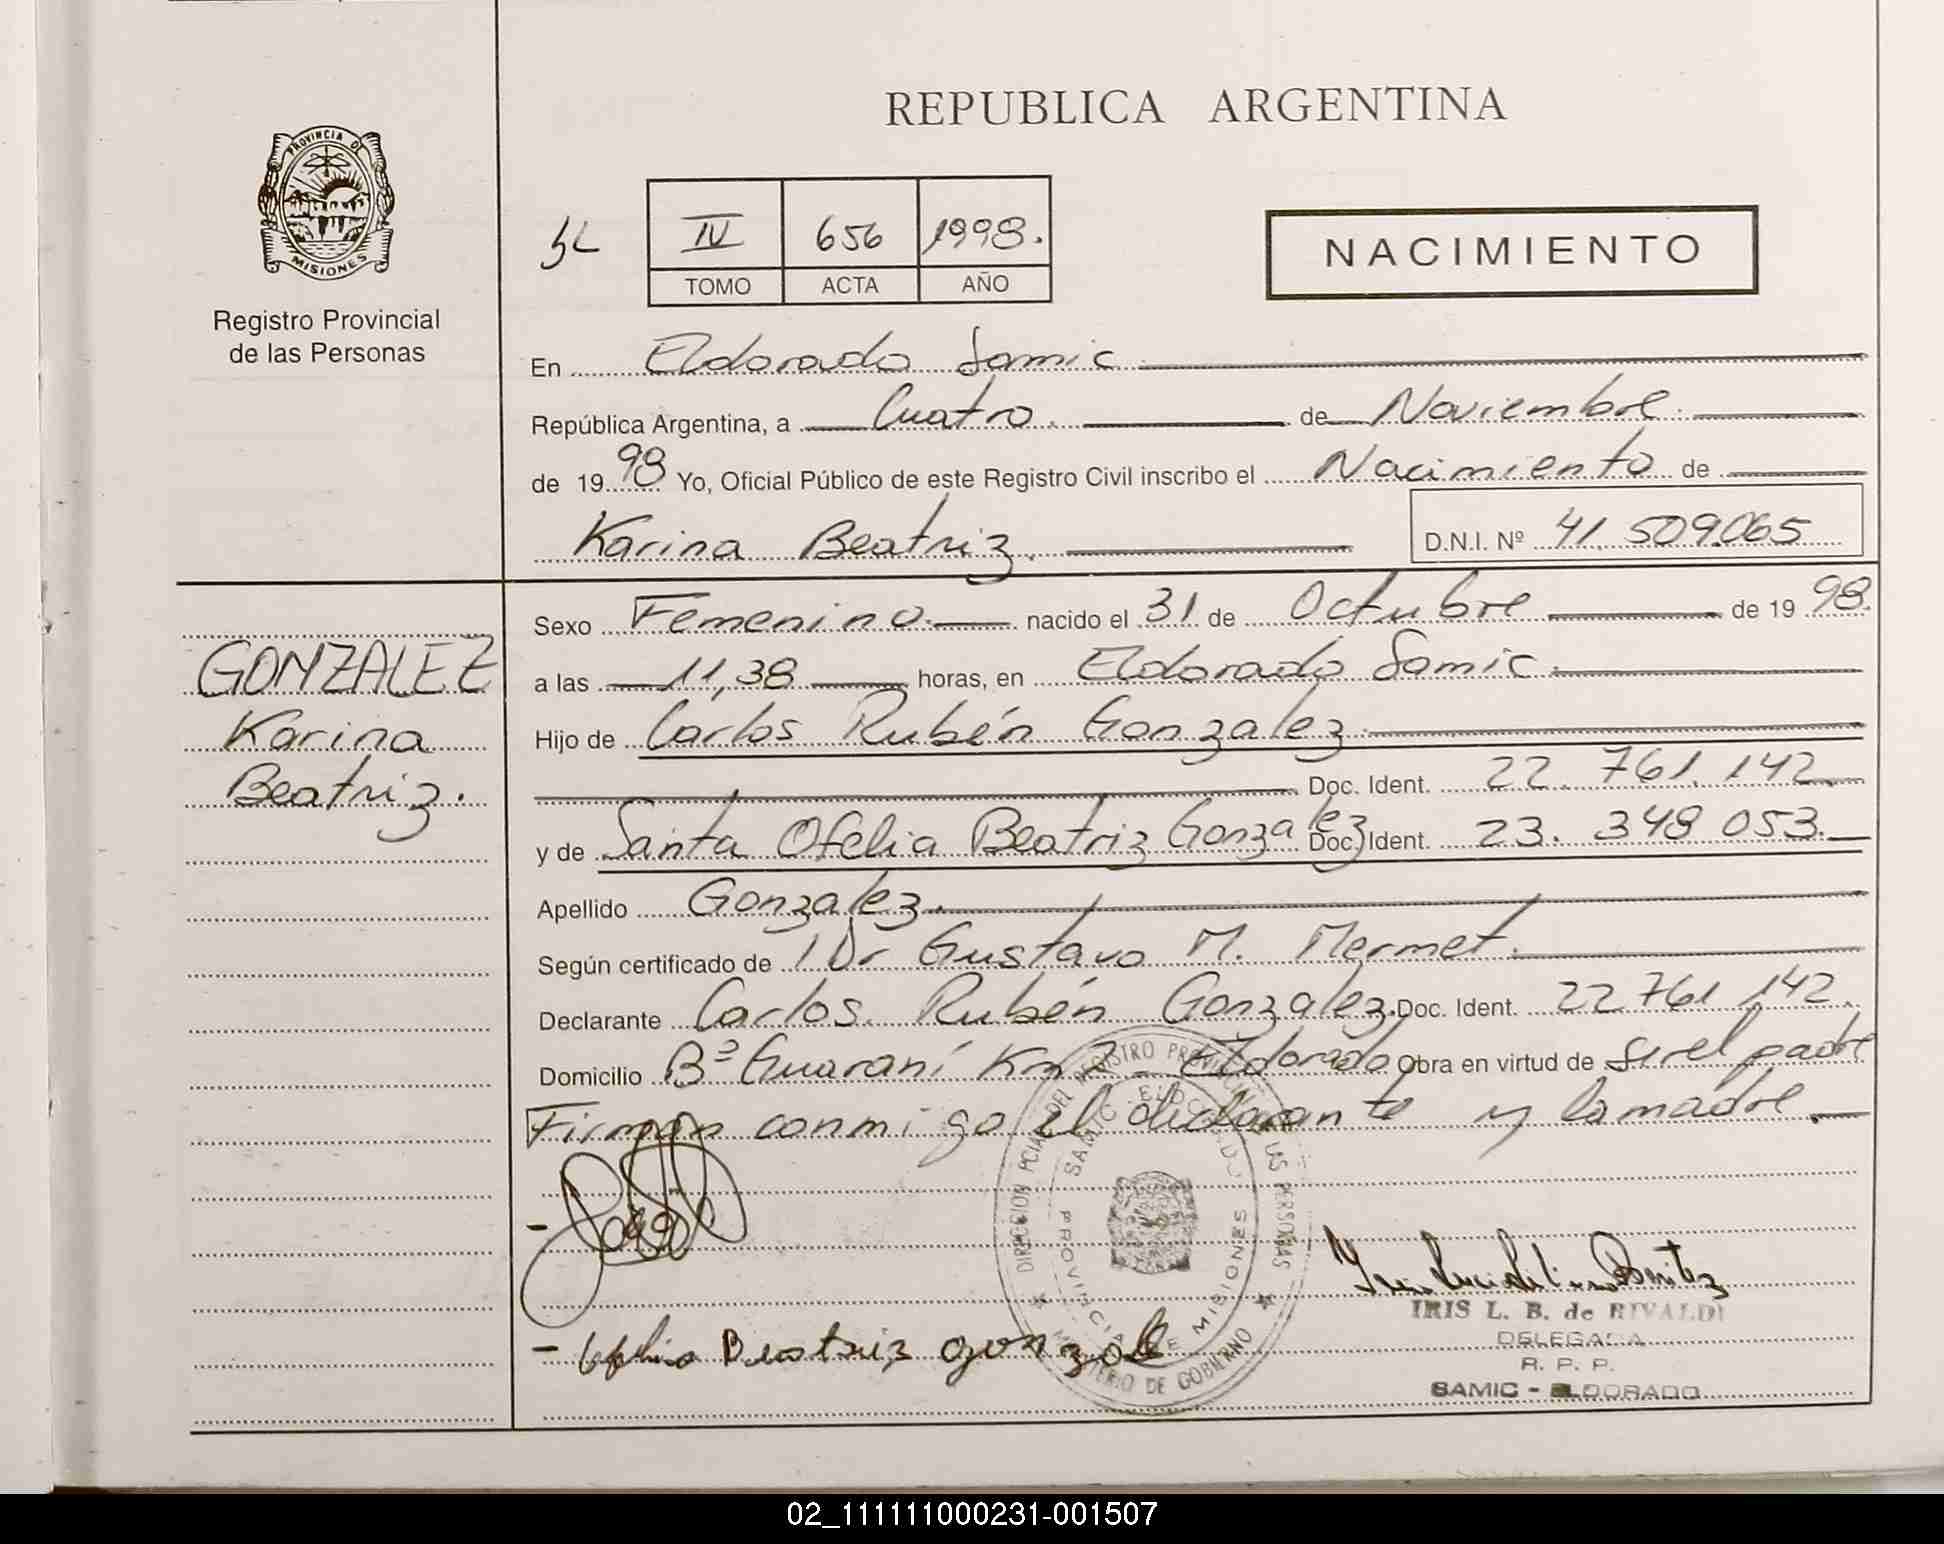 REPUBLICA ARGENTINA
PROVINCIA DE
MISIONES
Registro Provincial
de las Personas
IV 656 1998.
TOMO ACTA AÑO
NACIMIENTO
En Eldorado Samic
República Argentina, a Cuatro. de Noviembre.
de 1998 Yo, Oficial Público de este Registro Civil inscribo el Nacimiento de
Karina Beatriz. D.N.I. Nº 41.509.065
GONZALEZ
Karina
Beatriz.
Sexo Femenino. nacido el 31 de Octubre de 19 98.
a las 11,38 horas, en Eldorado Samic.
Hijo de Carlos Rubén Gonzalez.
Doc. Ident. 22.761.142.
y de Santa Ofelia Beatriz Gonzalez Doc. Ident. 23.348 053.
Apellido Gonzalez.
Según certificado de 1 Dr Gustavo M. Mermet.
Declarante Carlos. Rubén Gonzalez. Doc. Ident. 22.761.142.
Domicilio Bº Guaraní Km 2 - Eldorado Obra en virtud de ser el padre
Firman conmigo el declarante y la madre.
DIRECCION PCIAL. DEL REGISTRO PROVINCIAL DE LAS PERSONAS
SAMIC - ELDORADO
PROVINCIA DE MISIONES
MINISTERIO DE GOBIERNO
- Ofelia Beatriz gonzale
IRIS L. B. de RIVALDI
DELEGADA
R. P. P.
SAMIC - ELDORADO
02_111111000231-001507